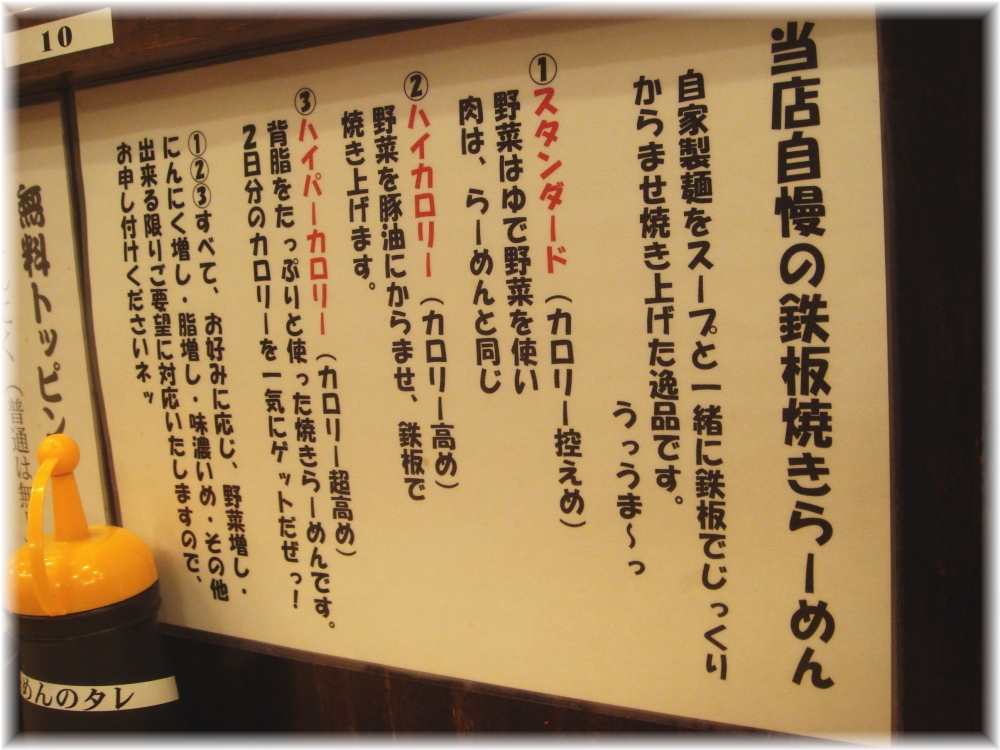 当店自慢の鉄板焼きらーめん
自家製麺をスープと一緒に鉄板でじっくり
からませ焼き上げた逸品です。
うっうま～っ
①スタンダード（カロリー控えめ）
野菜はゆで野菜を使い
肉は、らーめんと同じ
②ハイカロリー（カロリー高め）
野菜を豚油にからませ、鉄板で
焼き上げます。
③ハイパーカロリー（カロリー超高め）
背脂をたっぷりと使った焼きらーめんです。
2日分のカロリーを一気にゲットだぜっ！
①②③すべて、お好みに応じ、野菜増し・
にんにく増し・脂増し・味濃いめ・その他
出来る限りご要望に対応いたしますので、
お申し付けくださいネッ
10
無料トッピン
（普通は無
めんのタレ